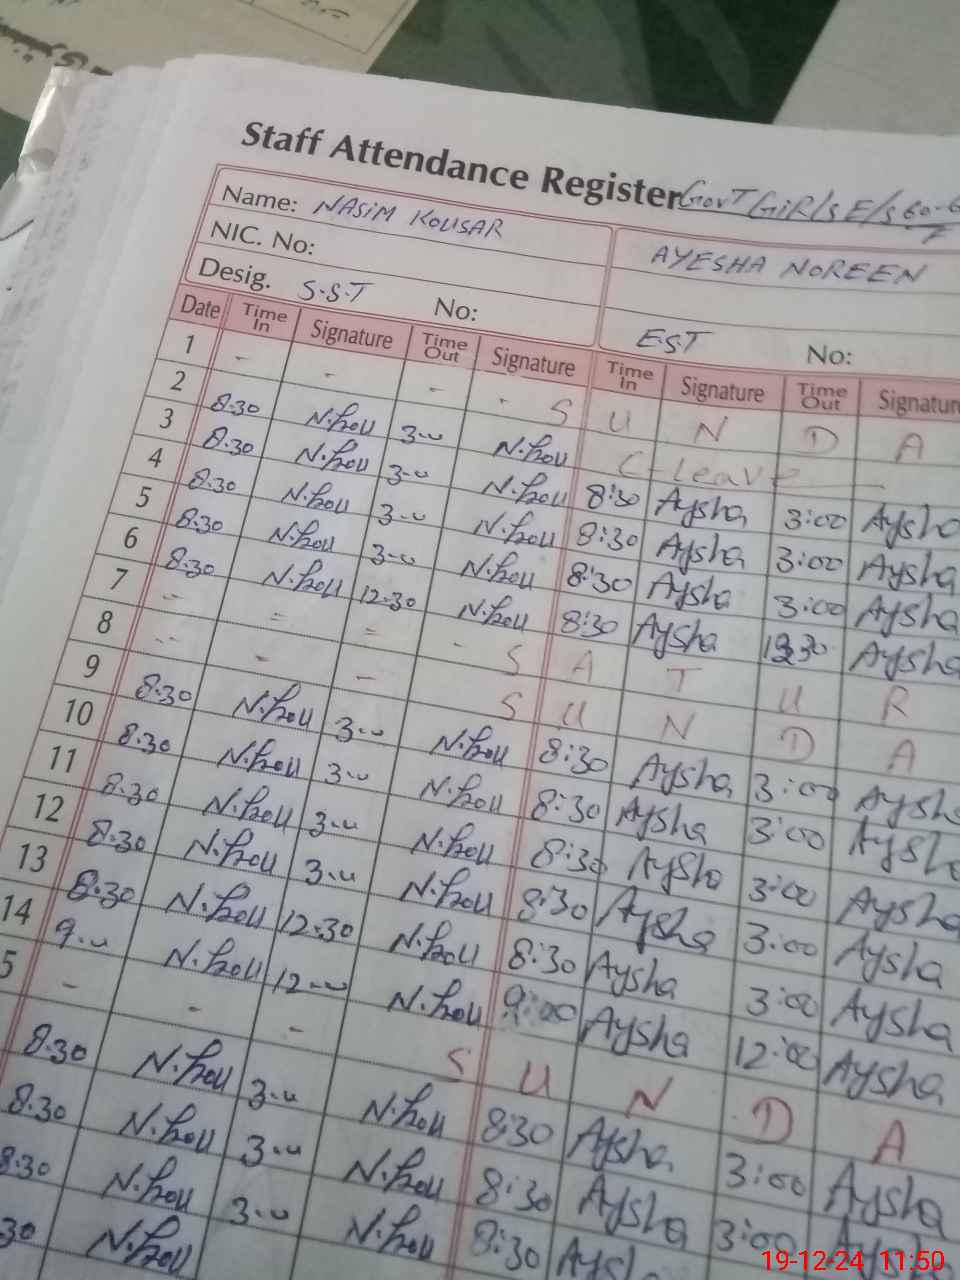 Staff Attendance Register GOVT GiRls E/s 60-
Name: NASIM KOUSAR AYESHA NOREEN
NIC. No:
Desig. S.S.T No: EST No:
Date Time In Signature Time Out Signature Time In Signature Time Out Signature
1 - - - - S U N D A
2 8:30 N.Kou 3-00 N.Kou C-Leave
3 8.30 N.Kou 3-00 N.Kou 8:30 Aysha 3:00 Aysha
4 8.30 N.Kou 3-00 N.Kou 8:30 Aysha 3:00 Aysha
5 8.30 N.Kou 3-00 N.Kou 8:30 Aysha 3:00 Aysha
6 8.30 N.Kou 12.30 N.Kou 8:30 Aysha 12:30 Aysha
7 - = = - S A T U R
8 - - - S U N D A
9 8.30 N.Kou 3-00 N.Kou 8:30 Aysha 3:00 Aysha
10 8.30 N.Kou 3-00 N.Kou 8:30 Aysha 3:00 Aysha
11 8.30 N.Kou 3-00 N.Kou 8:30 Aysha 3:00 Aysha
12 8.30 N.Kou 3-00 N.Kou 8:30 Aysha 3:00 Aysha
13 8.30 N.Kou 12.30 N.Kou 8:30 Aysha 3:00 Aysha
14 9-00 N.Kou 12-00 N.Kou 9:00 Aysha 12:00 Aysha
5 - - - S U N D A
8.30 N.Kou 3-00 N.Kou 8:30 Aysha 3:00 Aysha
8.30 N.Kou 3-00 N.Kou 8:30 Aysha 3:00
8.30 N.Kou 3-00 N.Kou 8:30
30 N.Kou
19-12-24 11:50